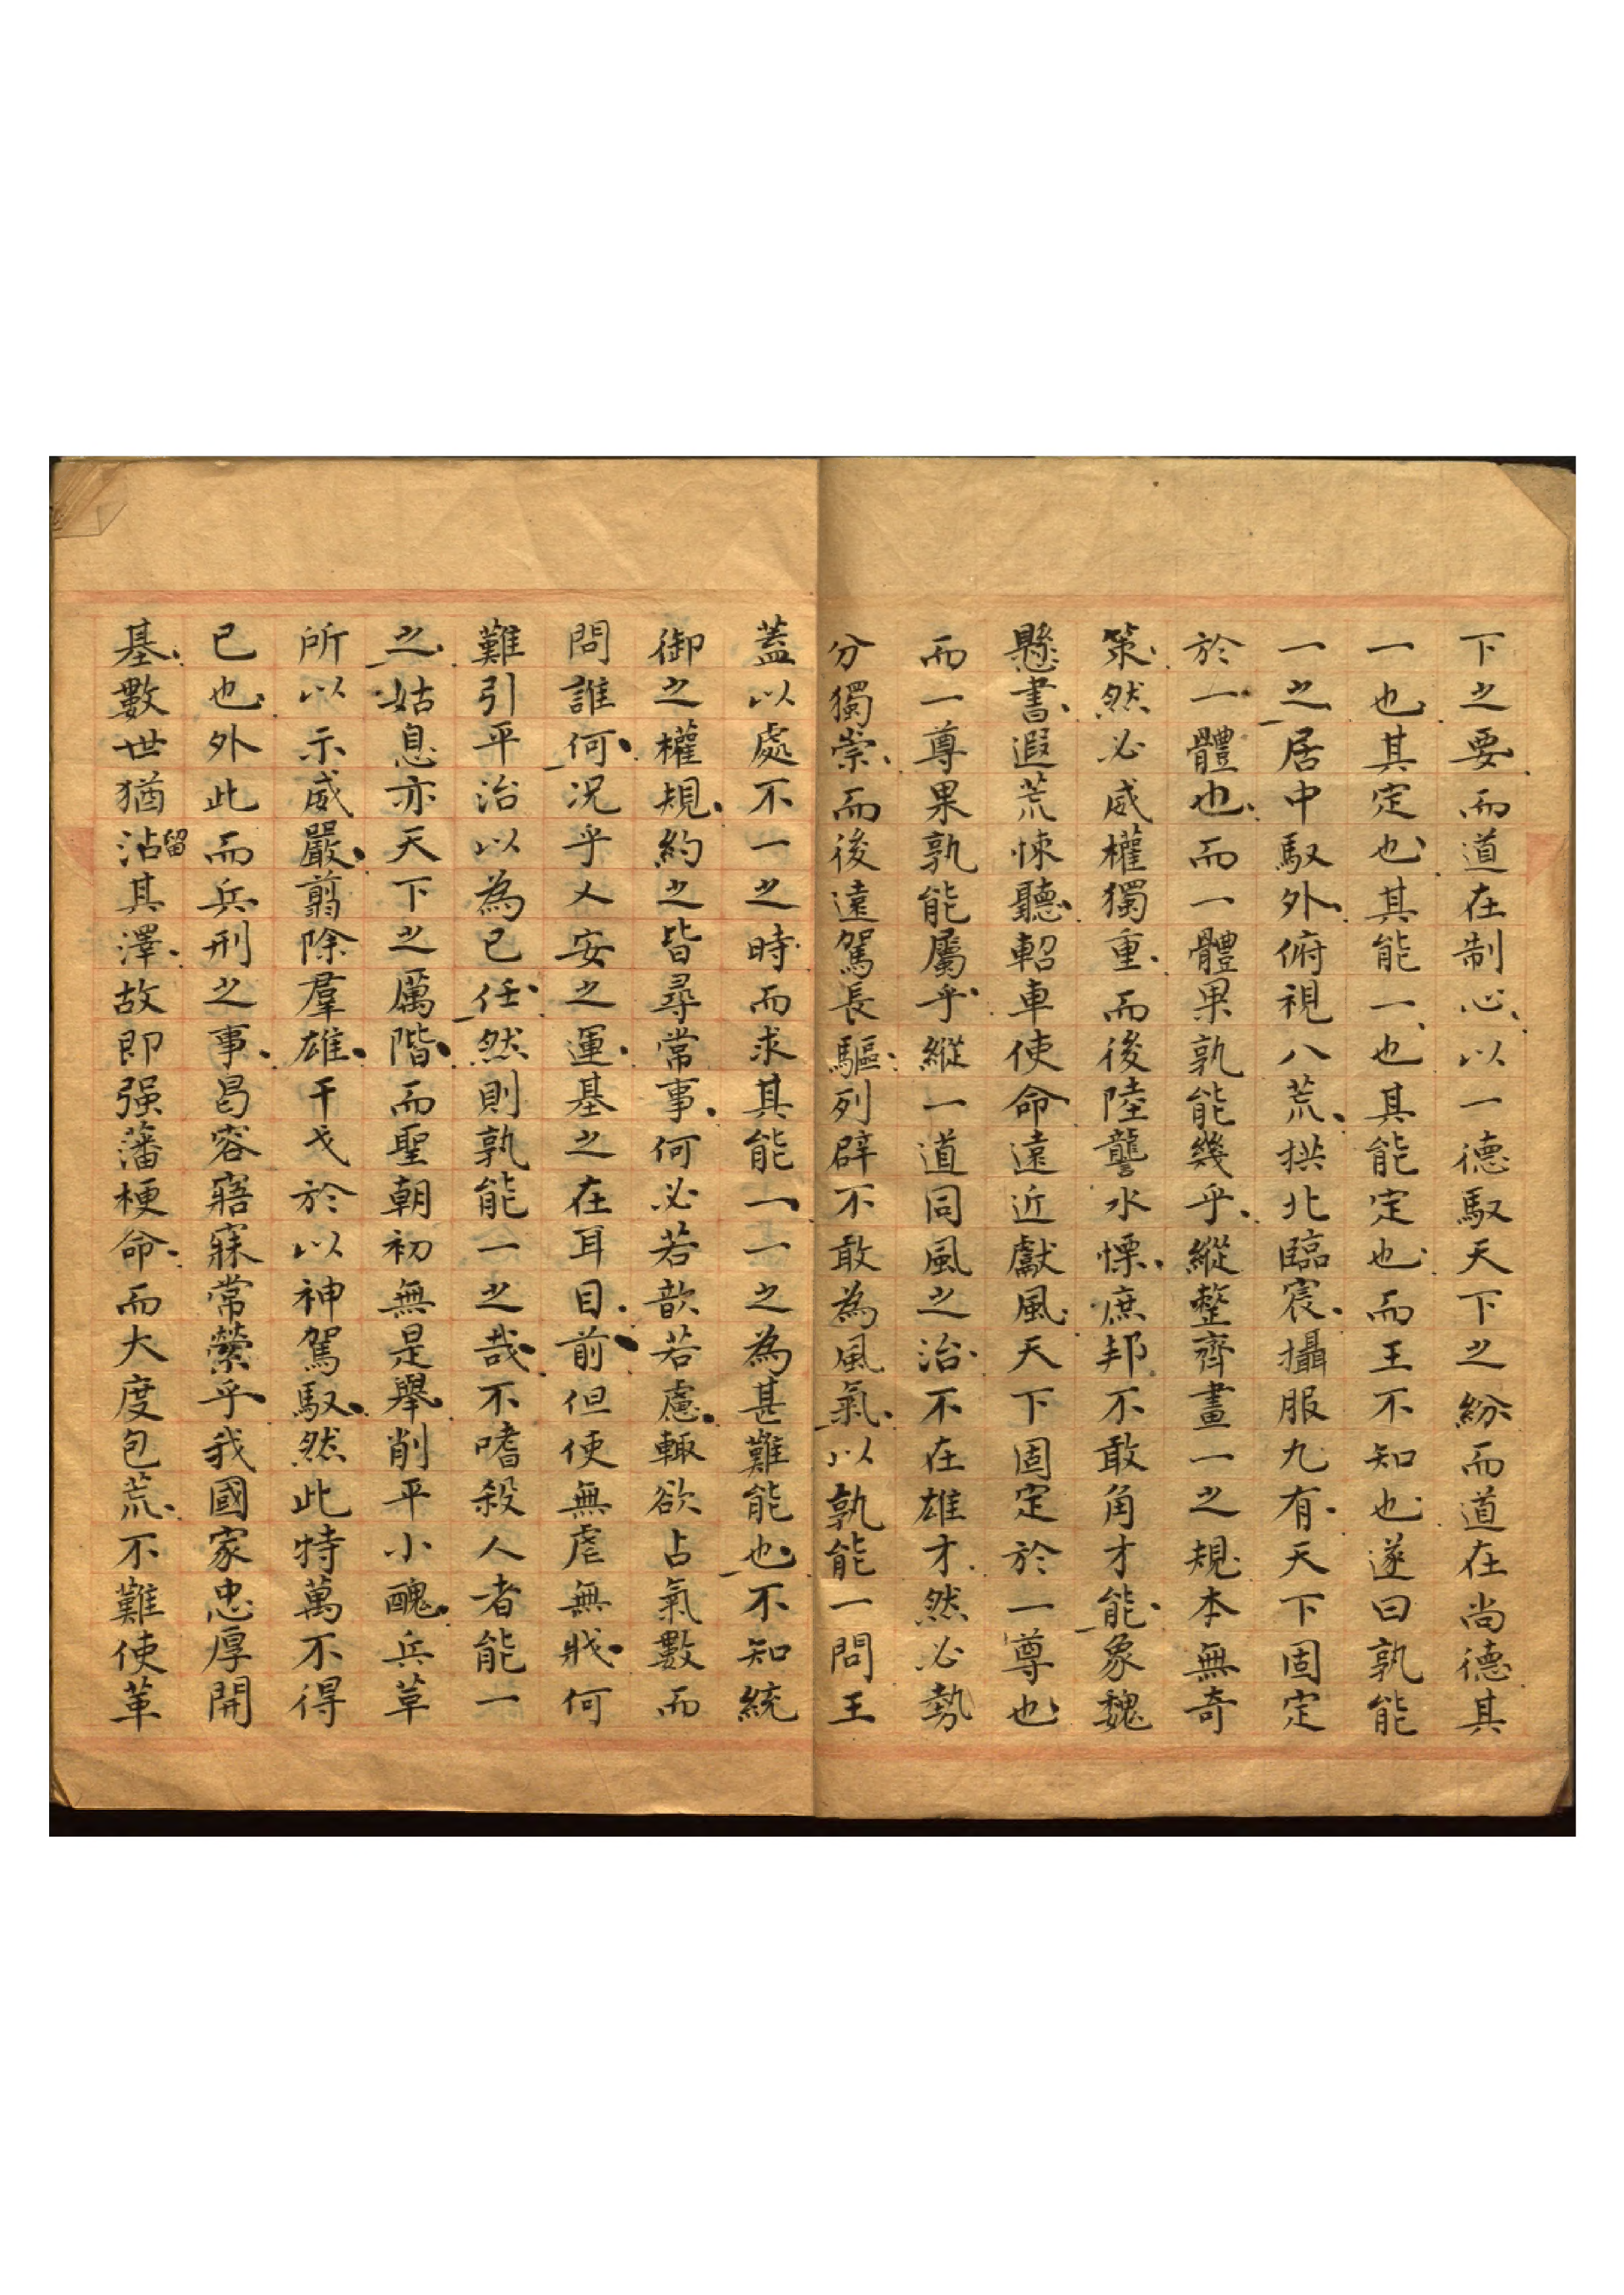 下之要而道在制心以一德馭天下之紛而道在尚德其
一也其定也其能一也其能定也而王不知也遂曰孰能
一之居中馭外俯視八荒拱北臨宸攝服九有天下固定
於一體也而一體果孰能幾乎縱整齊畫一之規本無奇
策然必威權獨重而後陸讋水慄庶邦不敢角才能象魏
懸書遐荒悚聽軺車使命遠近獻風天下固定於一尊也
而一尊果孰能屬乎縱一道同風之治不在雄才然必勢
分獨崇而後遠駕長驅列辟不敢為風氣以孰能一問王
蓋以處不一之時而求其能一一之為甚難能也不知統
御之權規約之皆尋常事何必若歆若慮輒欲占氣數而
問誰何況乎人安之運基之在耳目前但使無虐無戕何
難引平治以為已任然則孰能一之哉不嗜殺人者能一
之姑息亦天下之厲階而聖朝初無是舉削平小醜兵革
所以示威嚴翦除羣雄干戈於以神駕馭然此特萬不得
已也外此而兵刑之事曷容寤寐常縈乎我國家忠厚開
基數世猶沾留其澤故即强藩梗命而大度包荒不難使革